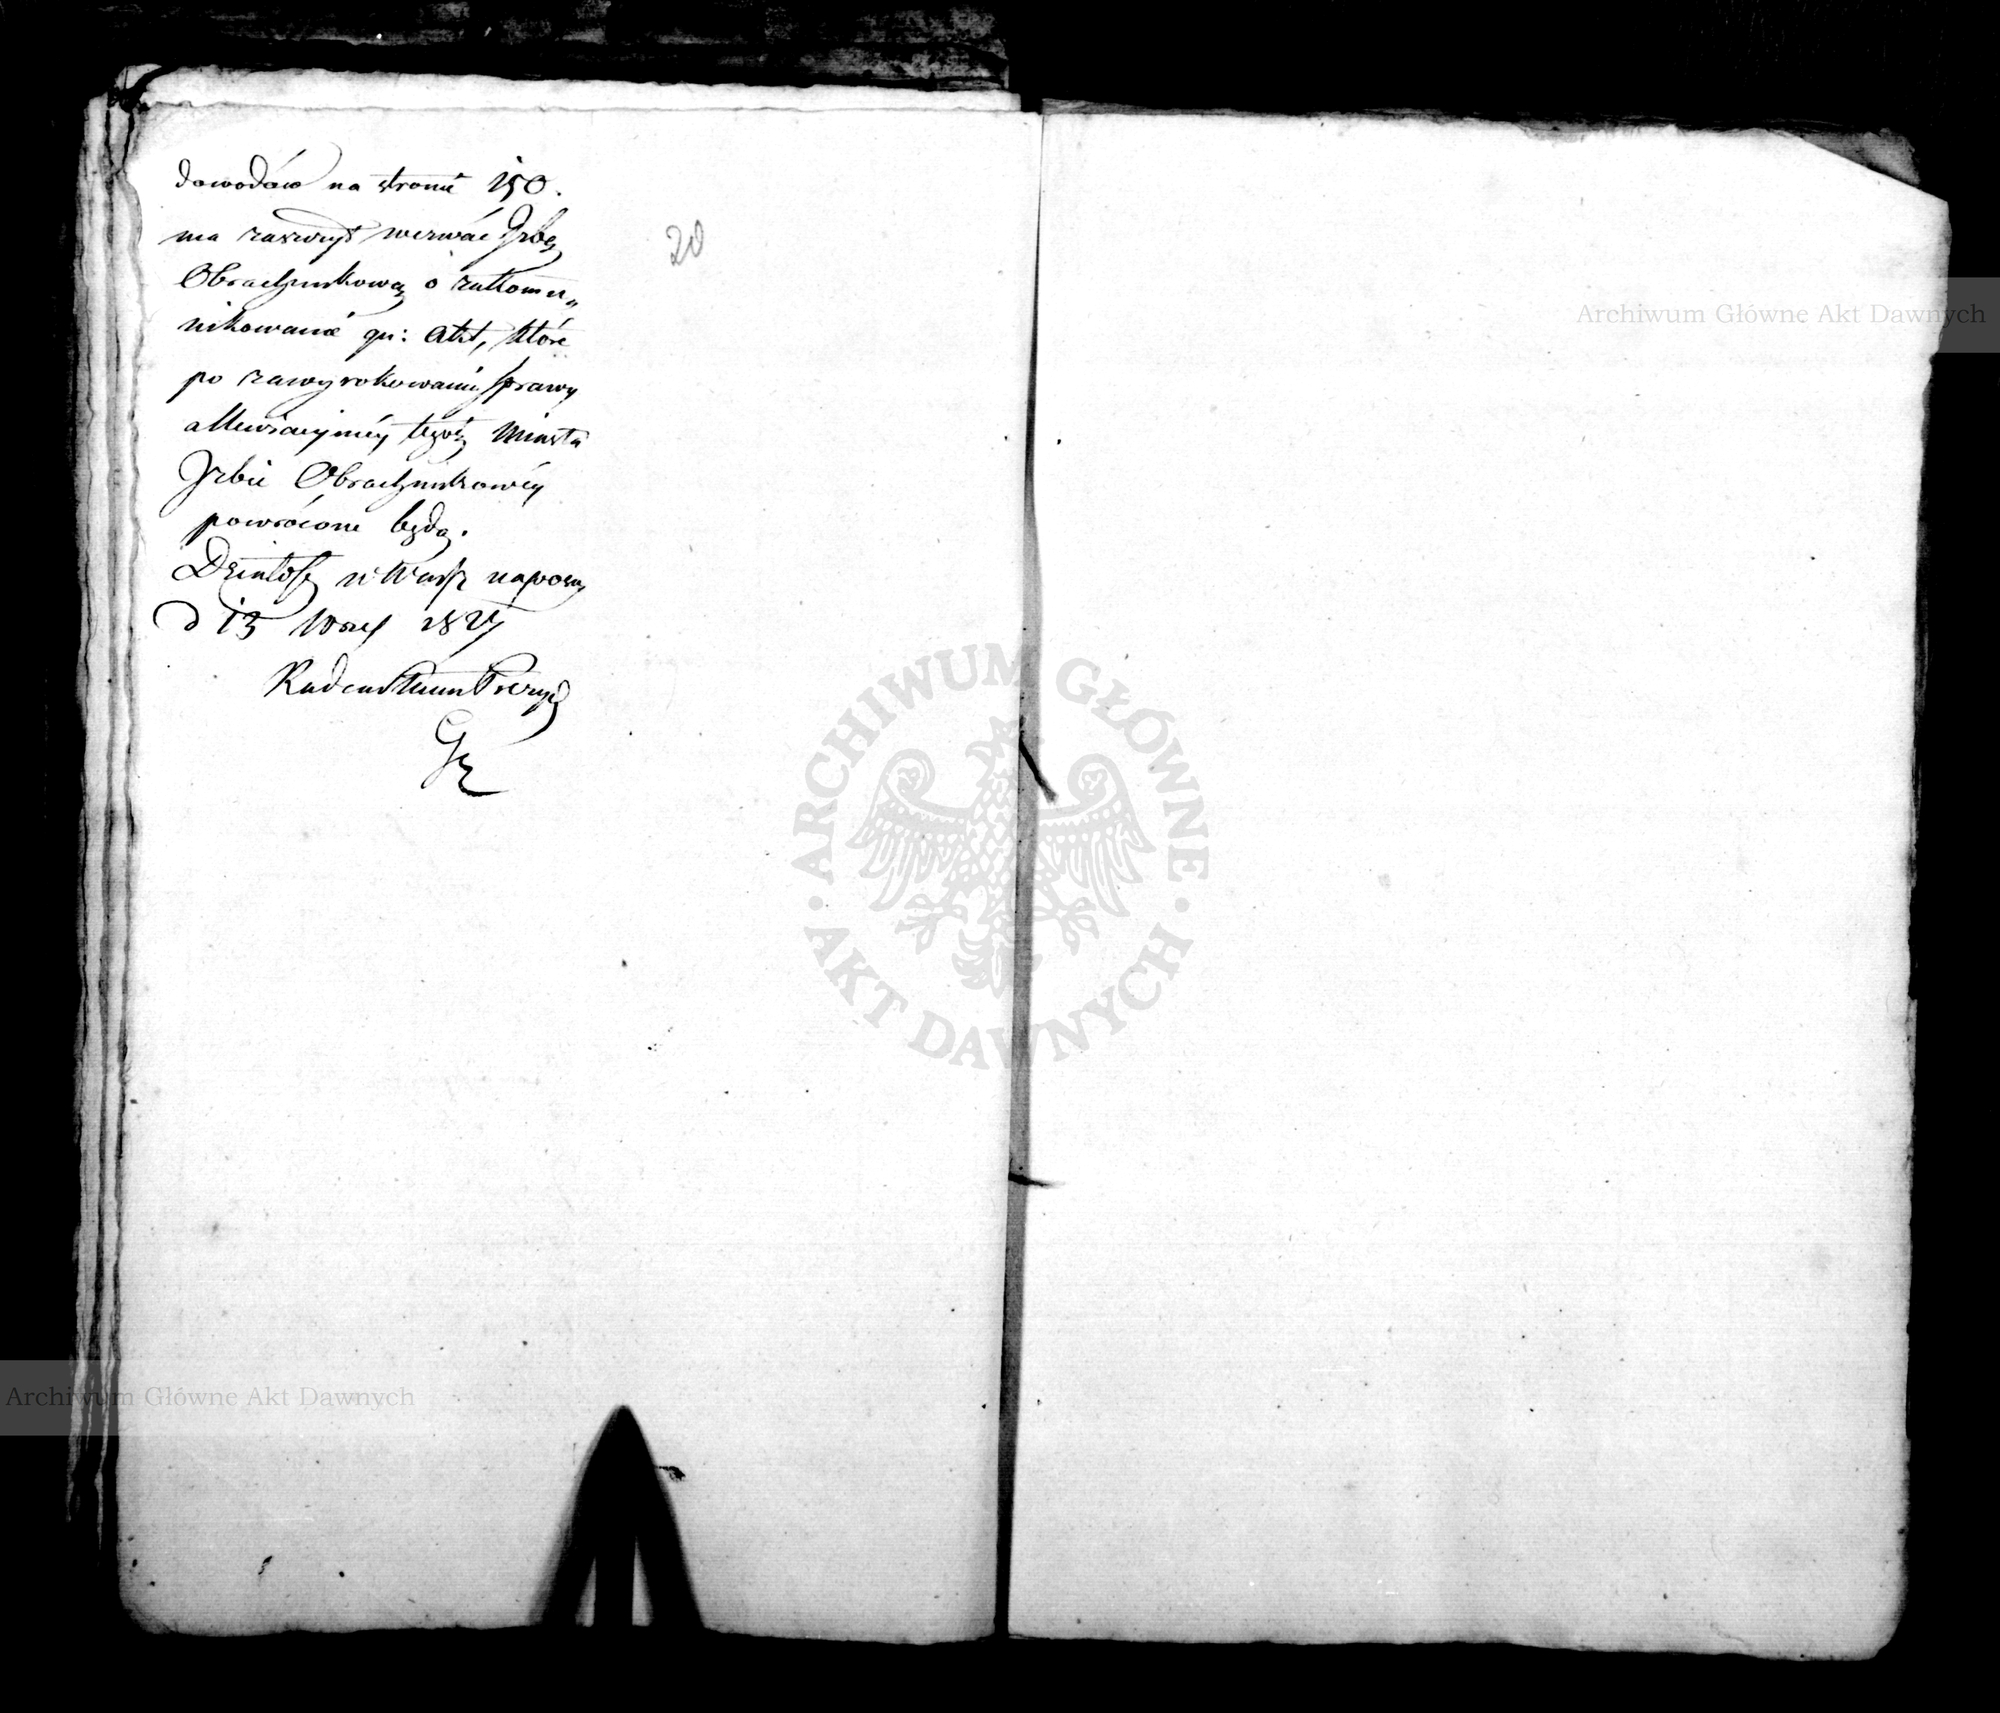 dowodów na stronie 150.
ma zaszczyt wezwać Izbę
Obrachunkową o zakomu„
nikowanie qu: akt, które
po zawyrokowaniu sprawy
allewiacyjnéy tegoż Miasta
Izbie Obrachunkowéy
powrócone będą.
Działo się w Warsz na posie
d 13 Wrześ 1827
Radca Stanu Prezyd
20
Archiwum Główne Akt Dawnych
ARCHIWUM GŁÓWNE AKT DAWNYCH
Archiwum Główne Akt Dawnych